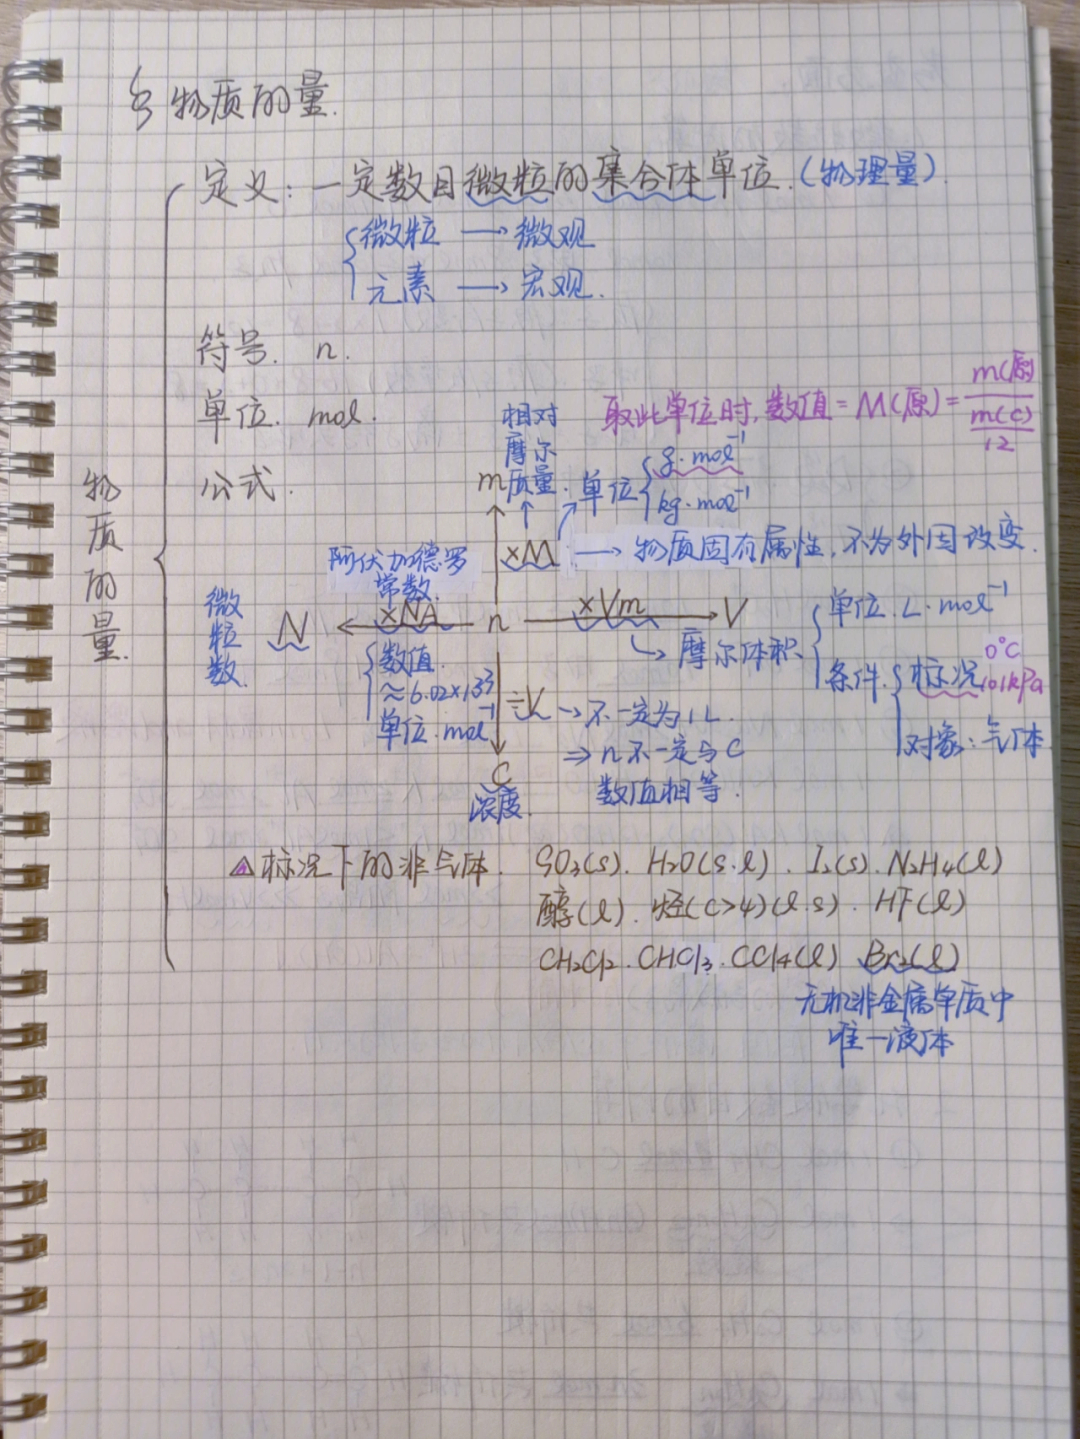 § 物质的量.
定义：一定数目微粒的集合体单位.（物理量）
微粒 → 微观
元素 → 宏观.
符号. n.
单位. mol.
公式.
取此单位时, 数值 = M(原) = m(原) / (m(C)/12)
相对
摩尔
质量.
m
单位 g·mol⁻¹
kg·mol⁻¹
×M → 物质固有属性, 不为外因改变.
阿伏加德罗
常数.
物质的量.
微粒数.
N ← ×NA n ×Vm → V
摩尔体积
单位. L·mol⁻¹
条件. 标况 0℃ 101kPa
对象: 气体
数值.
≈6.02×10²³
单位. mol⁻¹
÷V → 不一定为1L.
⇒ n不一定与C
数值相等.
C
浓度.
△标况下的非气体. SO₃(s). H₂O(s.l). I₂(s). N₂H₄(l)
醇(l). 烃(C>4)(l.s). HF(l)
CH₂Cl₂. CHCl₃. CCl₄(l) Br₂(l)
无机非金属单质中
唯一液体